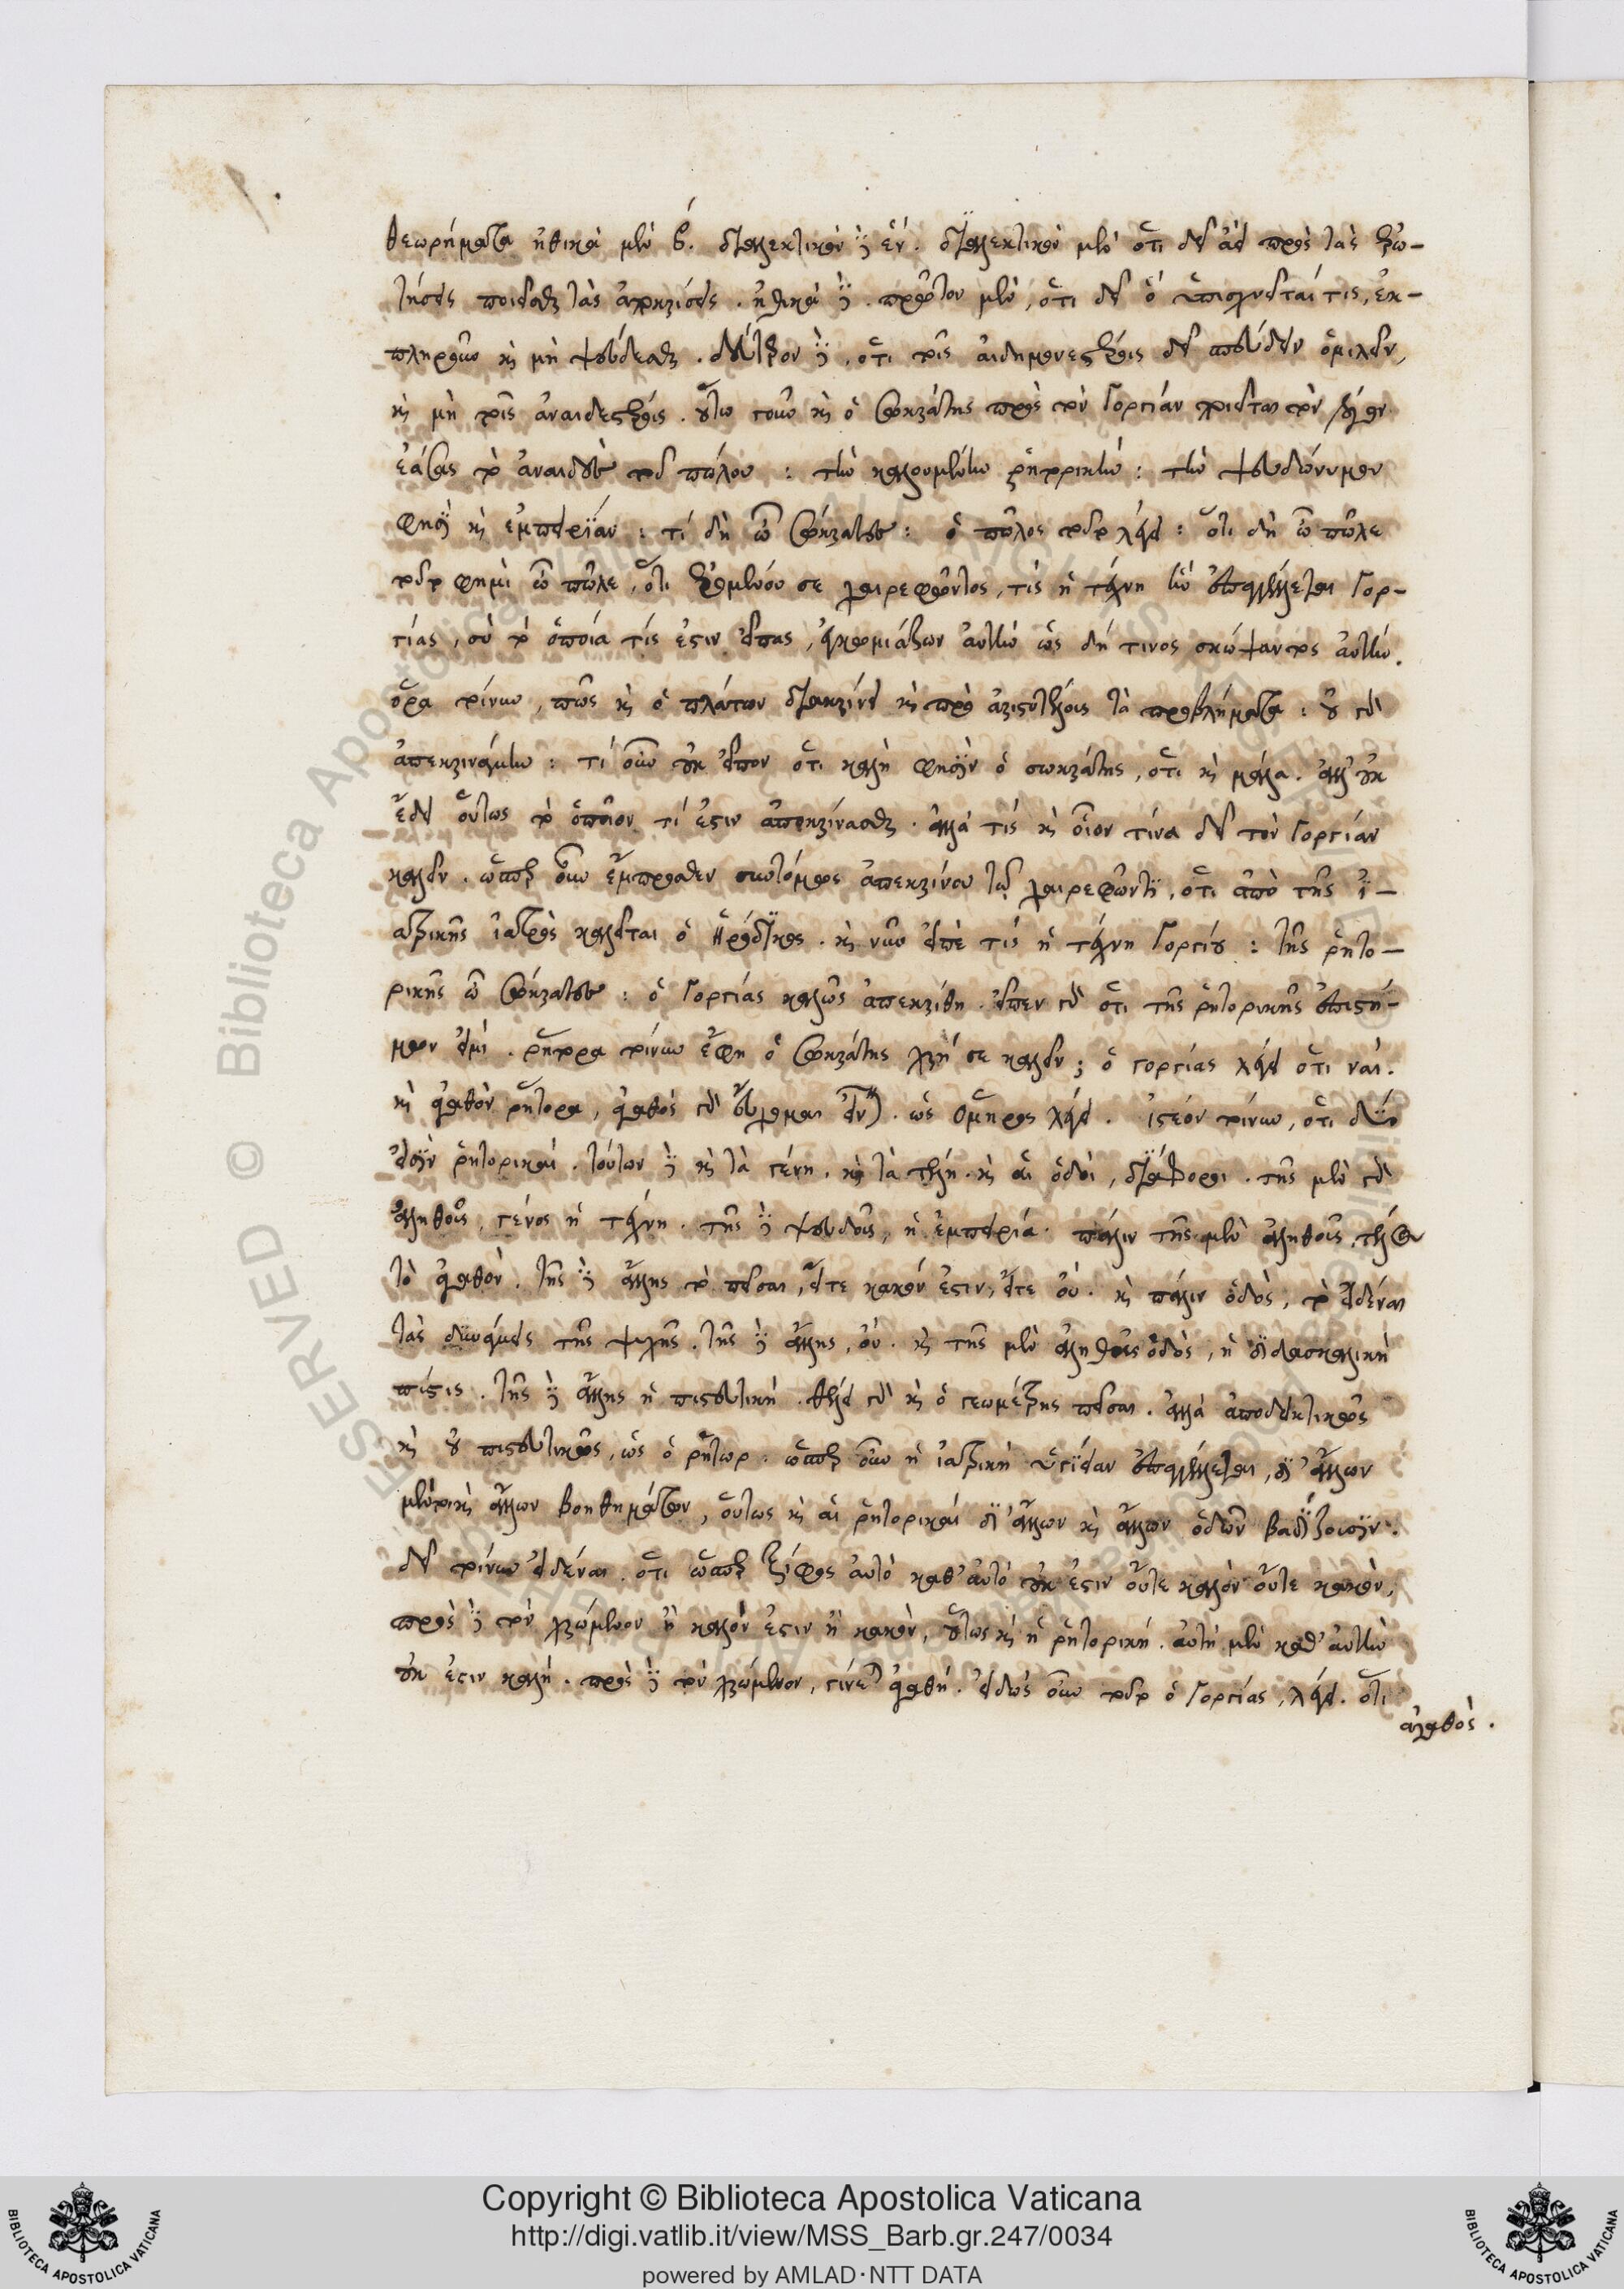 θεωρήματα ἠθικὰ μὲν β΄. διαλεκτικὸν δὲ ἕν. διαλεκτικὸν μὲν ὅτι δεῖ ἀεὶ πρὸς τὰς ἐρω-
τήσεις ποιεῖσθαι τὰς ἀποκρίσεις. ἠθικὰ δὲ. πρῶτον μὲν, ὅτι δεῖ ὃ ὑπισχνεῖταί τις, ἐκ-
πληροῦν καὶ μὴ ψεύδεσθαι. δεύτερον δὲ, ὅτι τοῖς αἰδημονεστέροις δεῖ σπεύδειν ὁμιλεῖν,
καὶ μὴ τοῖς ἀναιδεστέροις. οὕτω γοῦν καὶ ὁ Σωκράτης πρὸς τὸν Γοργίαν ποιεῖται τὸν λόγον
ἐάσας τὸ ἀναιδὲς τοῦ πώλου : τὴν καλουμένην ῥητορικήν : τὴν ψευδώνυμον
φησὶ καὶ ἐμπειρίαν : τί δὴ ὦ Σώκρατες : ὁ πῶλος τοῦτο λέγει : ὅτι δὴ ὦ πῶλε
τοῦτο φημὶ ὦ πῶλε, ὅτι ἐρομένου σε χαιρεφῶντος, τίς ἡ τέχνη ἣν ἐπαγγέλλεται Γορ-
γίας, σὺ τὸ ὁποία τίς ἐστιν εἶπας, ἐγκωμιάζων αὐτὴν ὡς δή τινος σκώψαντος αὐτήν.
ὅρα τοίνυν, πῶς καὶ ὁ πλάτων διακρίνει καὶ πρὸ ἀριστοτέλους τὰ προβλήματα : οὐ γὰρ
ἀπεκρινάμην : τί οὖν οὐκ εἶπον ὅτι καλὴ φησὶν ὁ σωκράτης, ὅτι καὶ μάλα. ἀλλ' οὐκ
ἔδει οὕτως τὸ ὁποῖον τί ἐστιν ἀποκρίνασθαι. ἀλλὰ τίς καὶ οἷον τίνα δεῖ τὸν Γοργίαν
καλεῖν. ὥσπερ οὖν ἔμπροσθεν συντόμως ἀπεκρίνου τῷ χαιρεφῶντι, ὅτι ἀπὸ τῆς ἰ-
ατρικῆς ἰατρὸς καλεῖται ὁ Ἡρόδικος. καὶ νῦν εἰπὲ τίς ἡ τέχνη Γοργίου : τῆς ῥητο-
ρικῆς ὦ Σώκρατες : ὁ Γοργίας καλῶς ἀπεκρίθη. εἶπεν γὰρ ὅτι τῆς ῥητορικῆς ἐπιστή-
μων εἰμί. ῥήτορα τοίνυν ἔφη ὁ Σωκράτης χρή σε καλεῖν; ὁ γοργίας λέγει ὅτι ναί.
καὶ ἀγαθὸν ῥήτορα, ἀγαθὸς γὰρ εὔχομαι εἶναι. ὡς Ὅμηρος λέγει. ἰστέον τοίνυν, ὅτι δύο
εἰσὶν ῥητορικαί. τούτων δὲ καὶ τὰ γένη. καὶ τὰ τέλη. καὶ αἱ ὁδοὶ, διάφοροι. τῆς μὲν γὰρ
ἀληθοῦς, γένος ἡ τέχνη. τῆς δὲ ψευδοῦς, ἡ ἐμπειρία. πάλιν τῆς μὲν ἀληθοῦς, τέλος
τὸ ἀγαθόν. τῆς δὲ ἄλλης τὸ πεῖσαι, εἴτε κακόν ἐστιν, εἴτε οὔ. καὶ πάλιν ὁδὸς, τὸ εἰδέναι
τὰς δυνάμεις τῆς ψυχῆς. τῆς δὲ ἄλλης, οὔ. καὶ τῆς μὲν ἀληθοῦς ὁδὸς, ἡ διδασκαλικὴ
πίστις. τῆς δὲ ἄλλης ἡ πιστευτική. θέλει γὰρ καὶ ὁ γεωμέτρης πεῖσαι. ἀλλὰ ἀποδεικτικῶς
καὶ οὐ πιστευτικῶς, ὡς ὁ ῥήτωρ. ὥσπερ οὖν ἡ ἰατρικὴ ὑγίειαν ἐπαγγέλλεται, δι' ἄλλων
μέντοι καὶ ἄλλων βοηθημάτων, οὕτως καὶ αἱ ῥητορικαί δι' ἄλλων καὶ ἄλλων ὁδῶν βαδίζουσιν.
δεῖ τοίνυν εἰδέναι. ὅτι ὥσπερ ξίφος αὐτὸ καθ' αὑτὸ οὐκ ἐστιν οὔτε καλὸν οὔτε κακὸν,
πρὸς δὲ τὸν χρώμενον ἢ καλόν ἐστιν ἢ κακὸν, οὕτως καὶ ἡ ῥητορική. αὐτὴ μὲν καθ' αὑτὴν
οὐκ ἐστιν καλή. πρὸς δὲ τὸν χρώμενον, γίνεται ἀγαθή. εἰδὼς οὖν τοῦτο ὁ Γοργίας, λέγει. ὅτι
ἀγαθὸς.
Copyright © Biblioteca Apostolica Vaticana
http://digi.vatlib.it/view/MSS_Barb.gr.247/0034
powered by AMLAD·NTT DATA